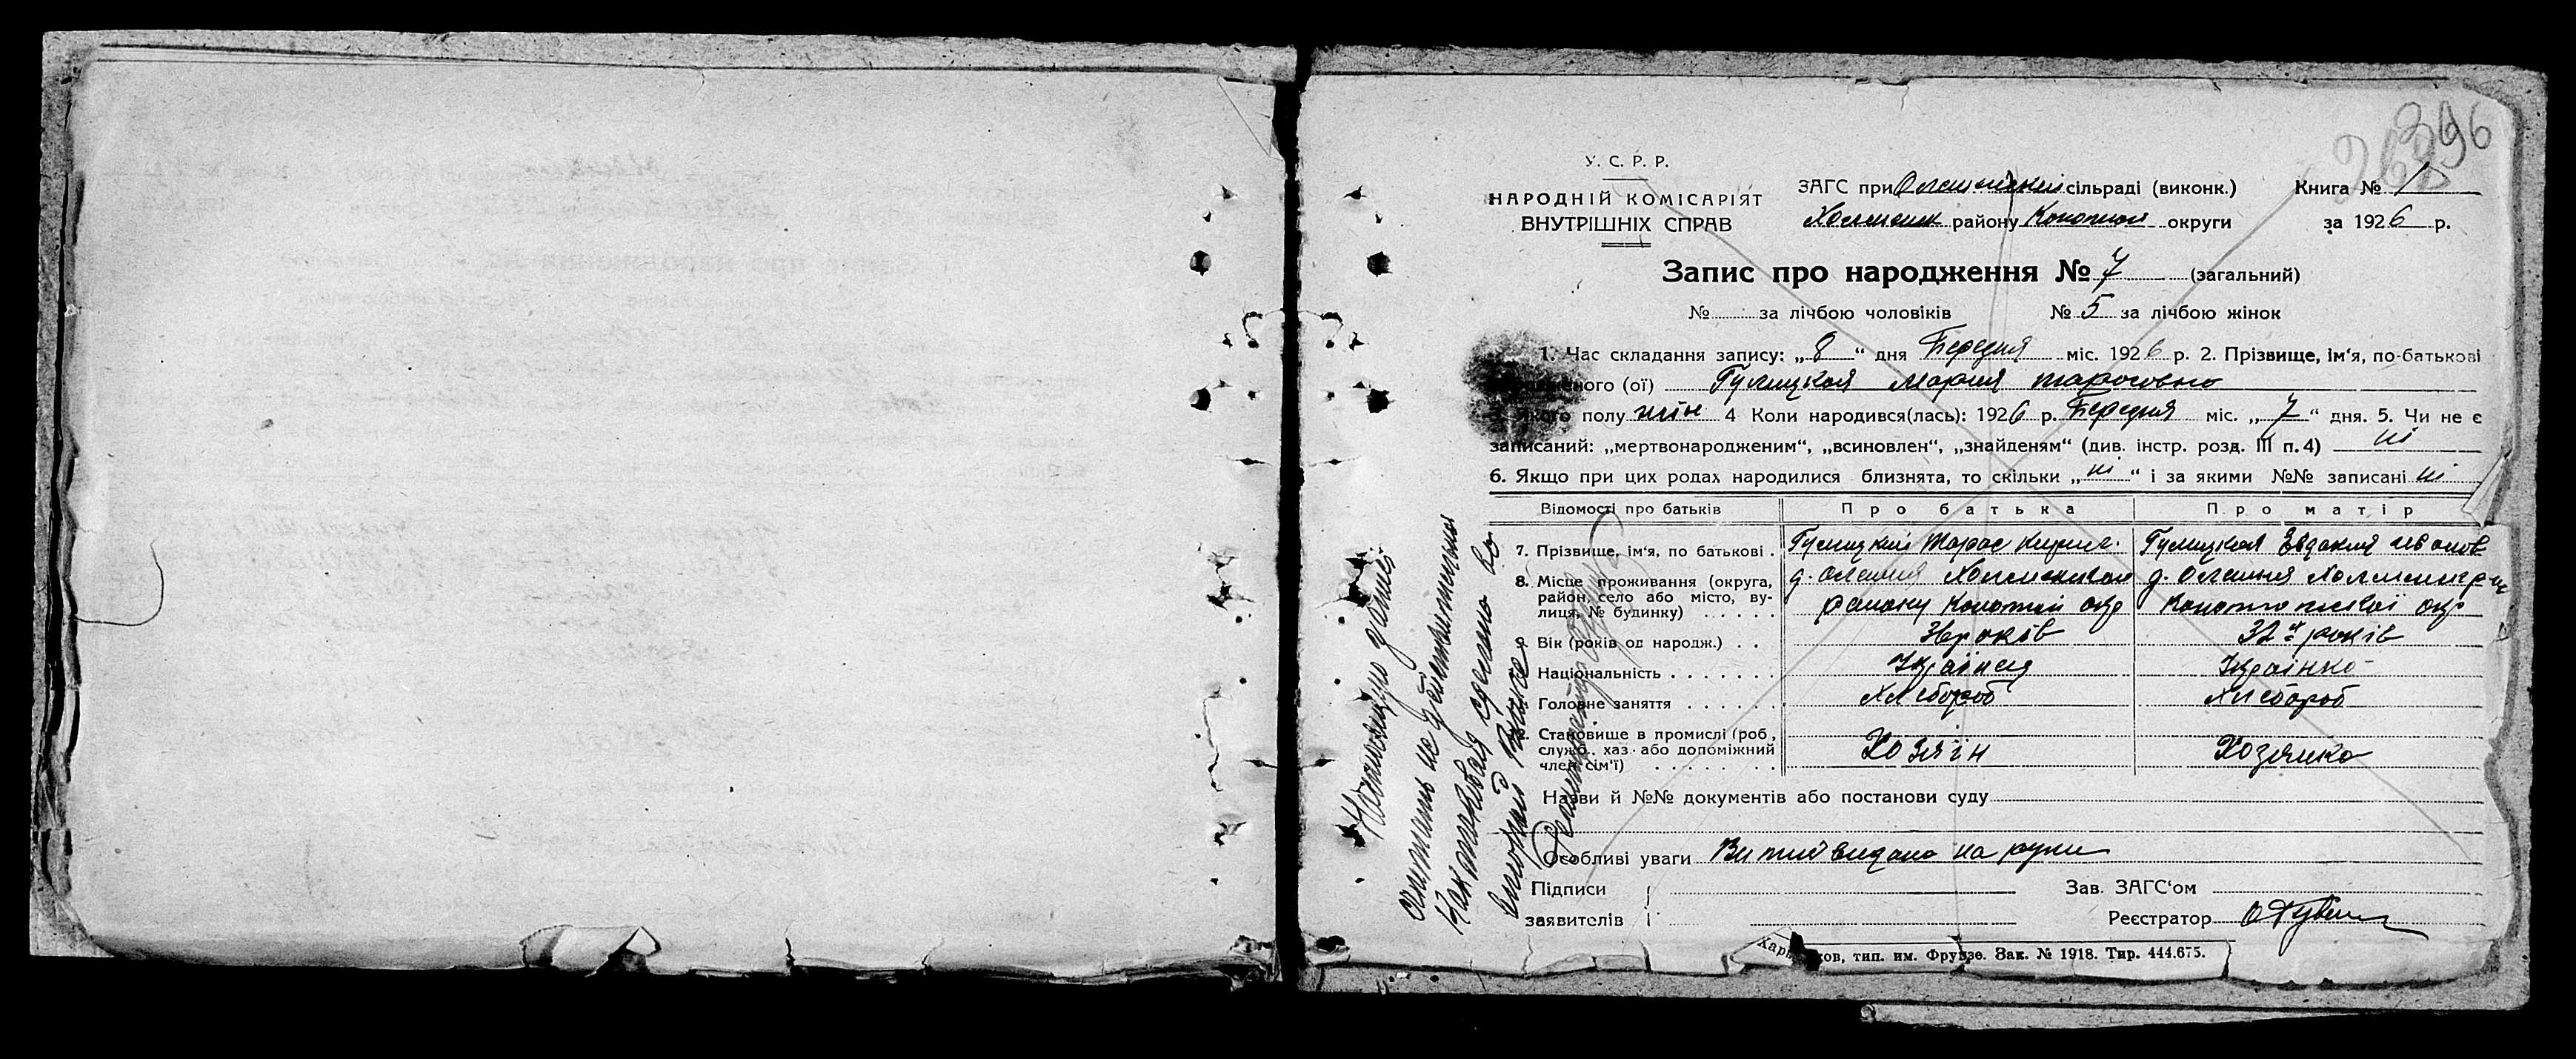 396
У. С. Р. Р.
НАРОДНІЙ КОМІСАРІЯТ
ВНУТРІШНІХ СПРАВ
ЗАГС при сільраді (виконк.)
району Конотоп округи
Книга № 1
за 1926 р.
Запис про народження № 7 (загальний)
№ за лічбою чоловіків № 5 за лічбою жінок
1. Час складання запису: „8“ дня Березня міс. 1926 р. 2. Прізвище, ім‘я, по-батькові
ного (ої) Гулицкая Мария Тарасовна
3. Якого полу жін 4 Коли народився(лась): 1926 р. Березня міс. „7“ дня. 5. Чи не є
записаний: „мертвонародженим“, „всиновлен“, „знайденям“ (див. інстр. розд. III п. 4) ні
6. Якщо при цих родах народилися близнята, то скільки „ні“ і за якими №№ записані ні
Відомості про батьків Про батька Про матір
7. Прізвище, ім‘я, по батькові . Гулицкий Тарас Гулицкая Евдокия Иванов
8. Місце проживання (округа, район, село або місто, вулиця, № будинку)
д. району Конотоп окр
д. окр
9. Вік (років од народж.) років 32 років
Національність Українец Українка
Головне заняття Хлебороб Хлебороб
Становище в промислі (роб, служб., хаз. або допоміжний член сім‘ї) Хозяїн Хозяйка
Назви й №№ документів або постанови суду
Особливі уваги видана на руки
Підписи
заявителів
Зав. ЗАГС‘ом
Реєстратор
Настоящую запись
считать не действительной
Как таковая сделана во
второй книге
Харьков, тип. им. Фрунзе. Зак. № 1918. Тир. 444.675.